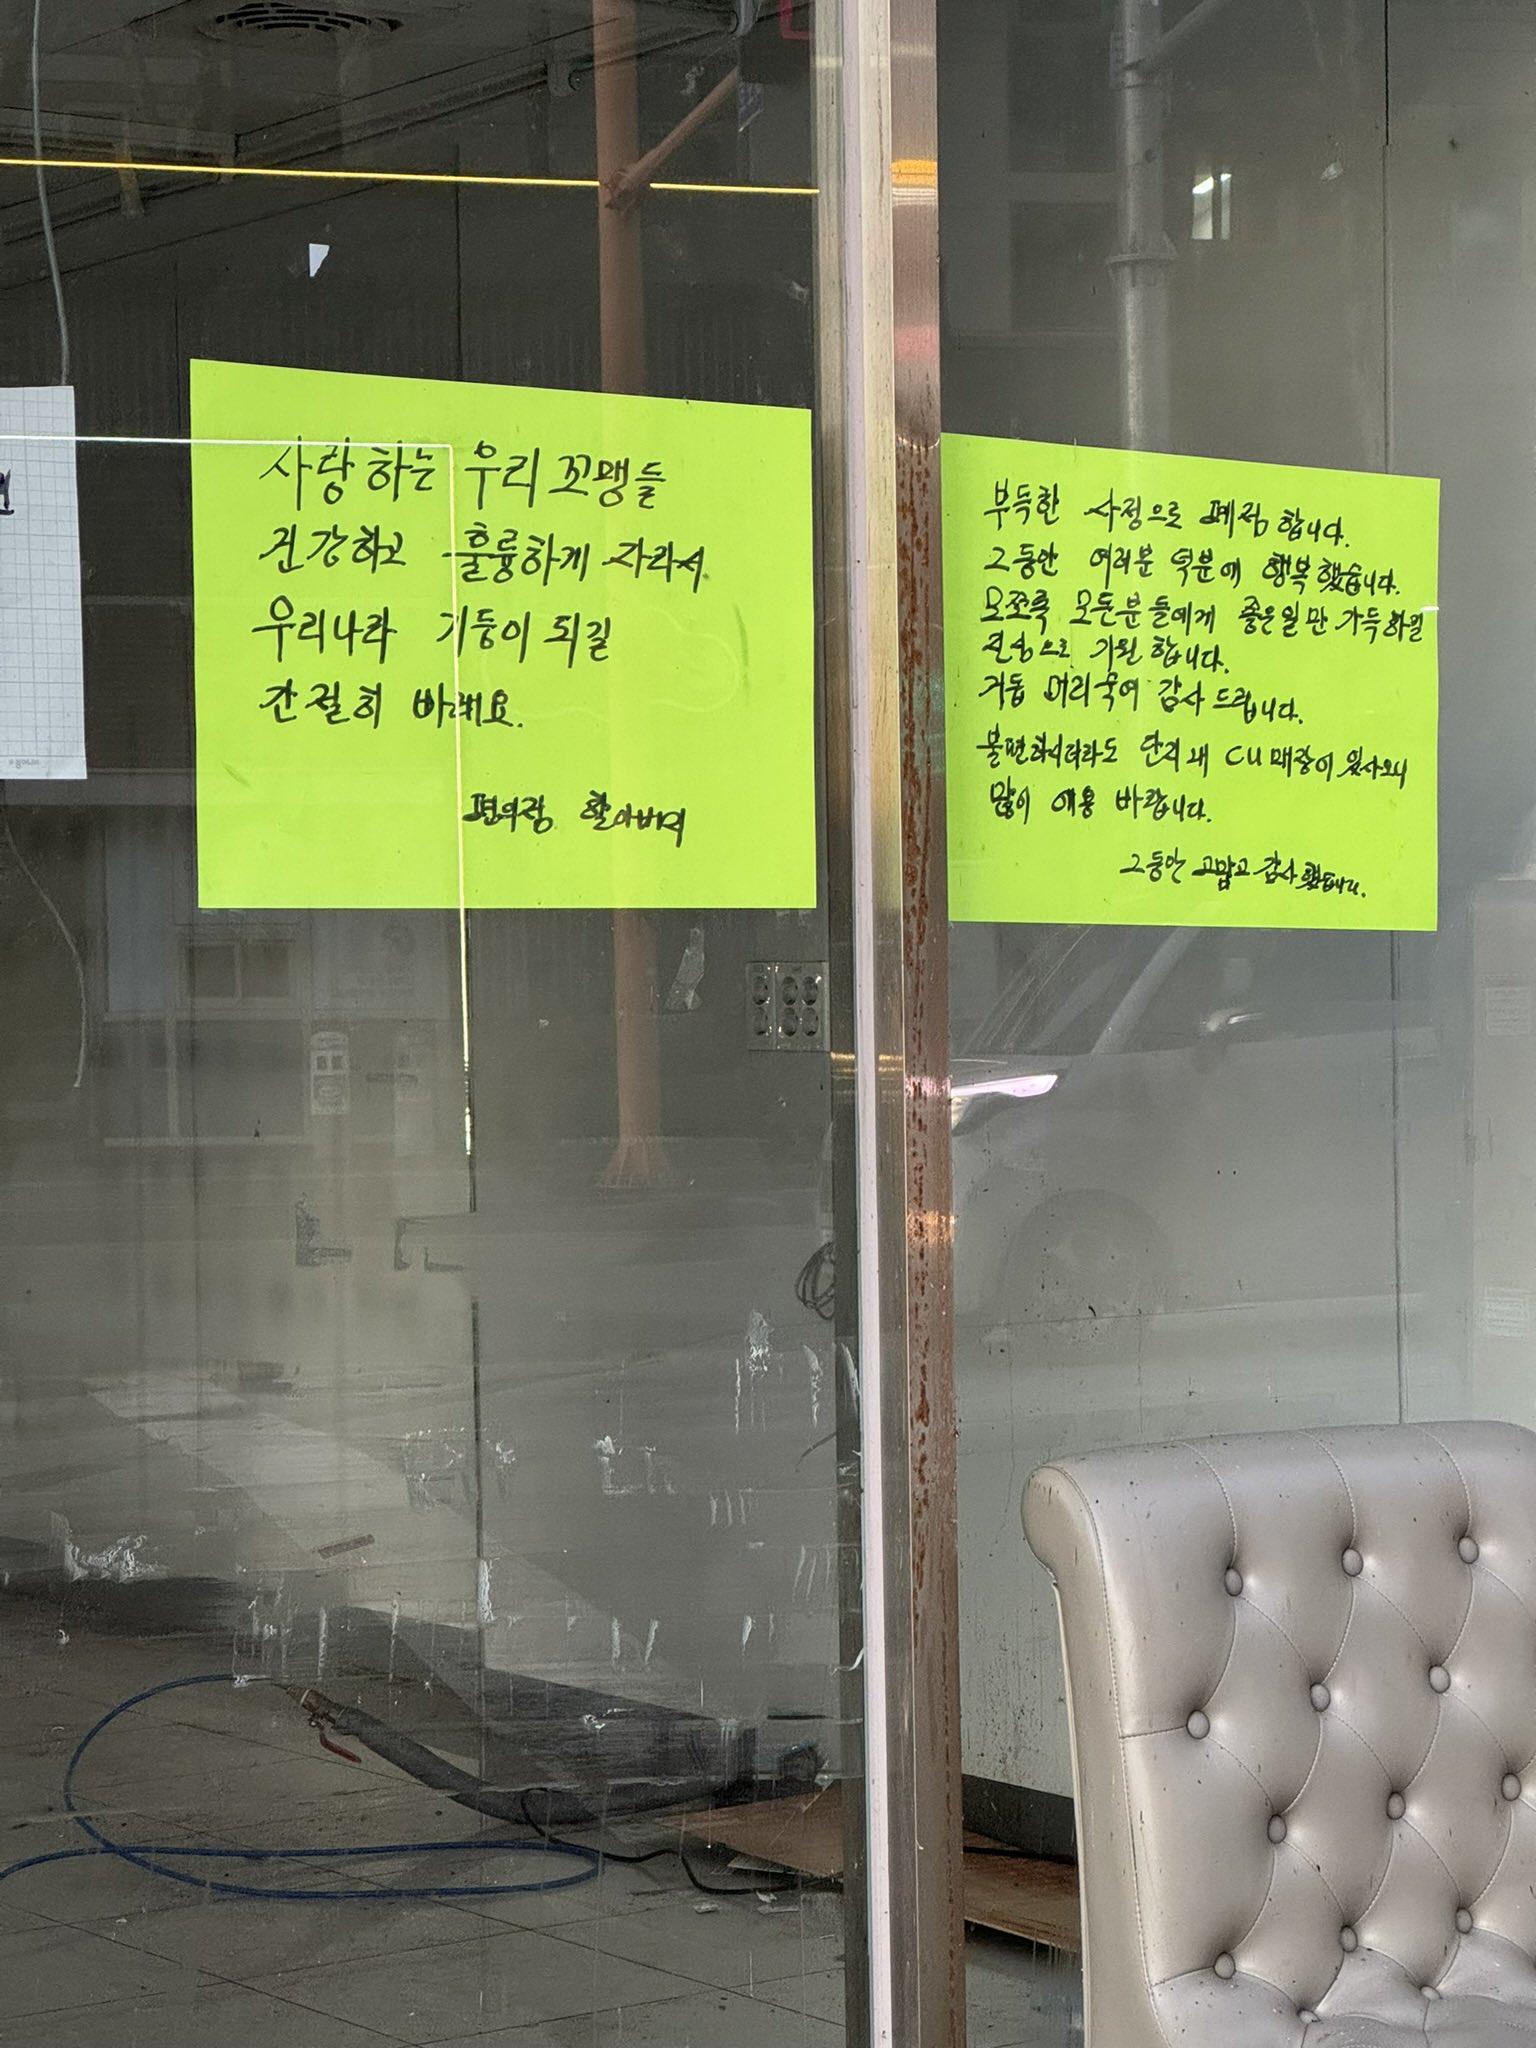 사랑하는 우리 꼬맹들
건강하고 훌륭하게 자라서
우리나라 기둥이 되길
간절히 바래요.
편의점 할아버지
부득한 사정으로 폐점 합니다.
그동안 여러분 덕분에 행복했습니다.
모쪼록 모든분들에게 좋은일만 가득하길
진심으로 기원 합니다.
거듭 머리숙여 감사드립니다.
불편하시더라도 단지내 CU매장이 있사오니
많이 애용 바랍니다.
그동안 고맙고 감사했습니다.